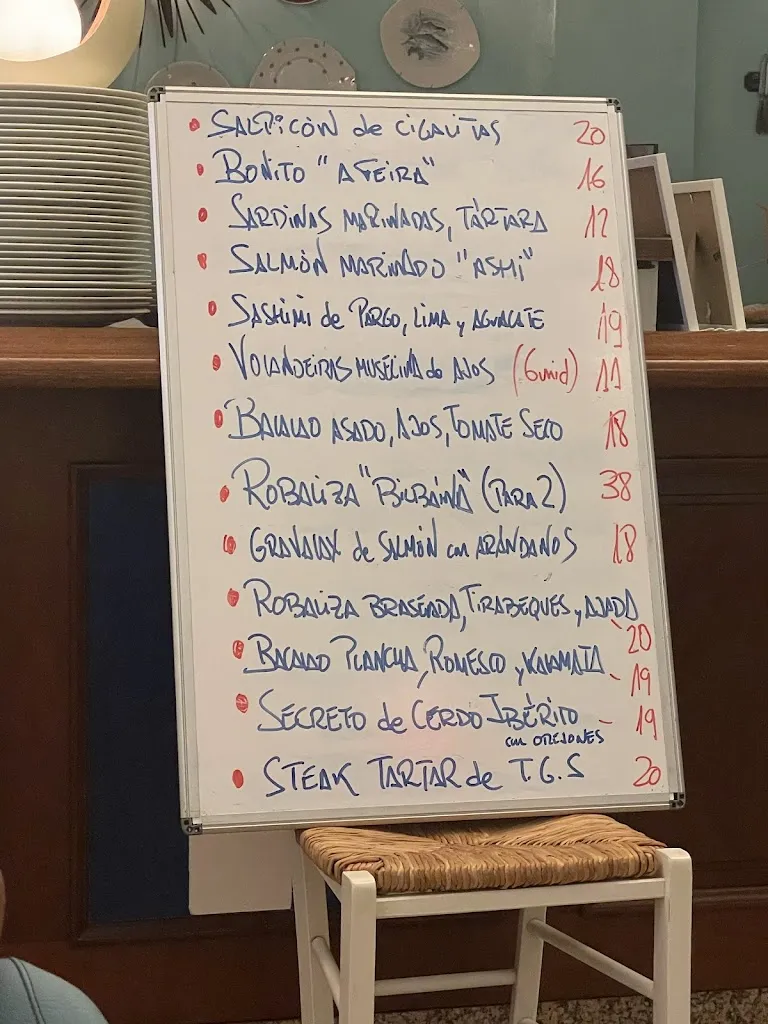 SALPICÓN de CIGALITAS 20
BONITO "A FEIRA" 16
SARDINAS MARINADAS, TÁRTARA 12
SALMÓN MARINADO "ASHI" 18
SASHIMI de PARGO, LIMA y AGUACATE 19
VOLANDEIRAS MUSELINA de AJOS (6 unid) 11
BACALAO ASADO, AJOS, TOMATE SECO 18
ROBALIZA "BILBAÍNA" (PARA 2) 38
GRAVALAX de SALMÓN con ARÁNDANOS 18
ROBALIZA BRASEADA, TIRABEQUES y AJADA
20
BACALAO PLANCHA, ROMESCO y KALAMATA - 19
SECRETO de CERDO IBÉRICO - 19
con OREJONES
STEAK TARTAR de T.G.S 20